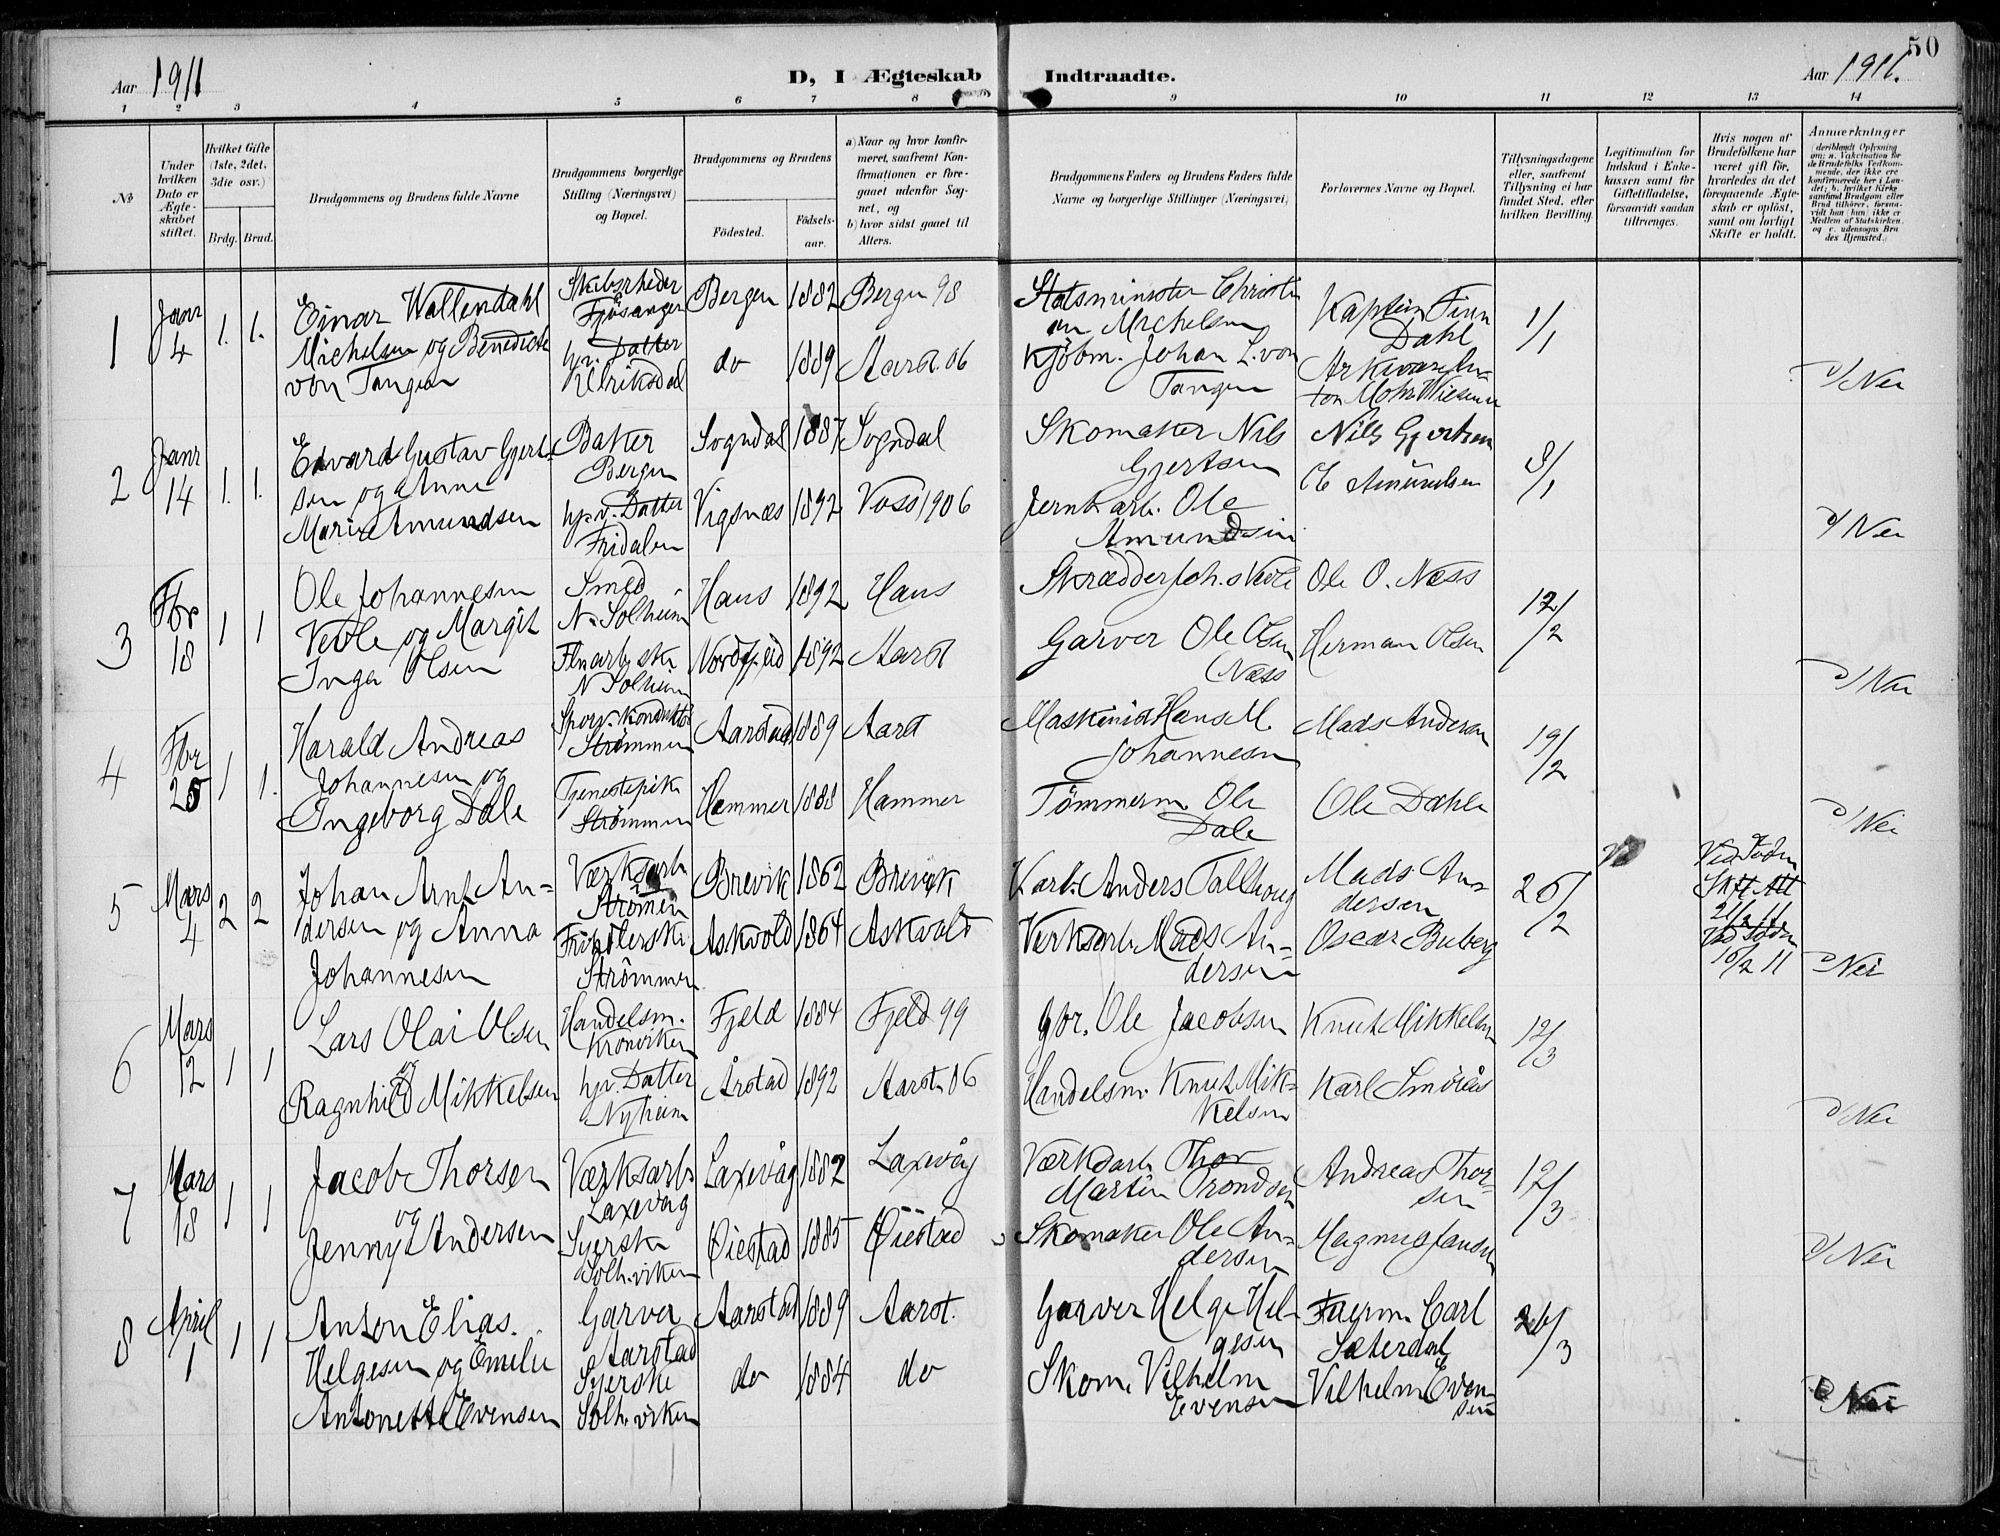 50
Aar 1911
D, I Ægteskab Indtraadte.
Aar 1911.
1 2 3 4 5 6 7 8 9 10 11 12 13 14
№
Under hvilken Dato er Ægteskabet stiftet.
Hvilket Gifte (1ste, 2det, 3die osv.)
Brdg. Brud.
Brudgommens og Brudens fulde Navne
Brudgommens borgerlige Stilling (Næringsvei) og Bopæl.
Brudgommens og Brudens
Fødested.
Fødselsaar.
a) Naar og hvor konfirmeret, saafremt Konfirmationen er foregaaet udenfor Sognet, og
b) hvor sidst gaaet til Alters.
Brudgommens Faders og Brudens Faders fulde Navne og borgerlige Stillinger (Næringsvei)
Forlovernes Navne og Bopæl.
Tillysningsdagene eller, saafremt Tillysning ei har fundet Sted, efter hvilken Bevilling.
Legitimation for Indskud i Enkekassen samt for Giftetilladelse, forsaavidt saadan tiltrænges.
Hvis nogen af Brudefolkene har været gift før, hvorledes da det foregaaende Ægteskab er opløst, samt om lovligt Skifte er holdt.
Anmerkninger
1 Janr 4 1. 1.
Einar Wallendahl
Michelsen og Benedicte
von Tangen
Skibsrheder
Fjøsanger
hjv. Datter
Ulriksdal
Bergen 1882 Bergen 98
do 1889 Aarst. 06
Statsminister Christi
an Michelsen
Kjöbm. Johan L. von
Tangen
Kaptein Finn
Dahl
1/1
Nei
2 Janr 14 1. 1.
Edvard Gustav Gjert-
sen og Anna
Marie Amundsen
Baker
Bergen
hjv. Datter
Fridalen
Sogndal 1887 Sogndal
Vigsnæs 1892 Voss 1906
Skomaker Nils
Gjertsen
Jernb.arb. Ole
Amundsen
Nils Gjertsen
Ole Amundsen
8/1
Nei
3 Fbr 18 1 1
Ole Johannesen
Vevle og Margit
Inga Olsen
Smed
N. Solheim
N Solheim
Haus 1892 Haus
Nordfjeid 1892 Aarst
Skrædder Joh. Vevle
Garver Ole Olsen
Næss
Ole O. Næss
Herman Olsen
12/2
Nei
4 Fbr 25 1 1.
Harald Andreas
Johannesen og
Ingeborg Dale
Sporv. Konduktör
Strömmen
Tjenestepike
Strömmen
Aarstad 1889 Aarst
Hammer 1888 Hammer
Maskinist Hans M.
Johannesen
Tömmerm. Ole
Dale
Mads Andersen
Ole Dahle
19/2
Nei
5 Mars 4 2 2
Johan Arnt An-
dersen og Anna
Johannesen
Værksarb
Strömmen
Strömmen
Brevik 1862 Brevik
Askvold 1864 Askvold
Karb. Anders Tallhoug
Verksarb. Mads An-
dersen
Mads An-
dersen
26/2
Ved Döden
Skft Att
21/2 11
Ved Döden
10/2 11
Nei
6 Mars 12 1 1
Lars Olai Olsen
og
Ragnhild Mikkelsen
Handelsm.
Kronviken
hjv. Datter
Nyheim
Fjeld 1884 Fjeld 99
Årstad 1892 Aarst. 06
Gbr. Ole Jacobsen
Handelsm. Knut Mik-
kelsen
Knut Mikkelsen
Karl Smörås
12/3
Nei
7 Mars 18 1 1
Jacob Thorsen
og
Jenny Andersen
Værksarb.
Laxevåg
Syerske
Solh.viken
Laxevåg 1882 Laxevåg
Øiestad 1885 Øiestad
Værksarb. Thor
Martin Trondsen
Skomaker Ole An-
dersen
Andreas Thor-
sen
Magnus Jansen
12/3
Nei
8 April 1 1 1
Anton Elias
Helgesen og Emilie
Antonette Evensen
Garver
Aarstad
Syerske
Solh.viken
Aarstad 1889 Aarst.
do 1884 do
Garver Helge Hel-
gesen
Skom. Vilhelm
Evensen
Fuerm. Carl
Sæterdal
Vilhelm Even-
sen
26/3
Nei